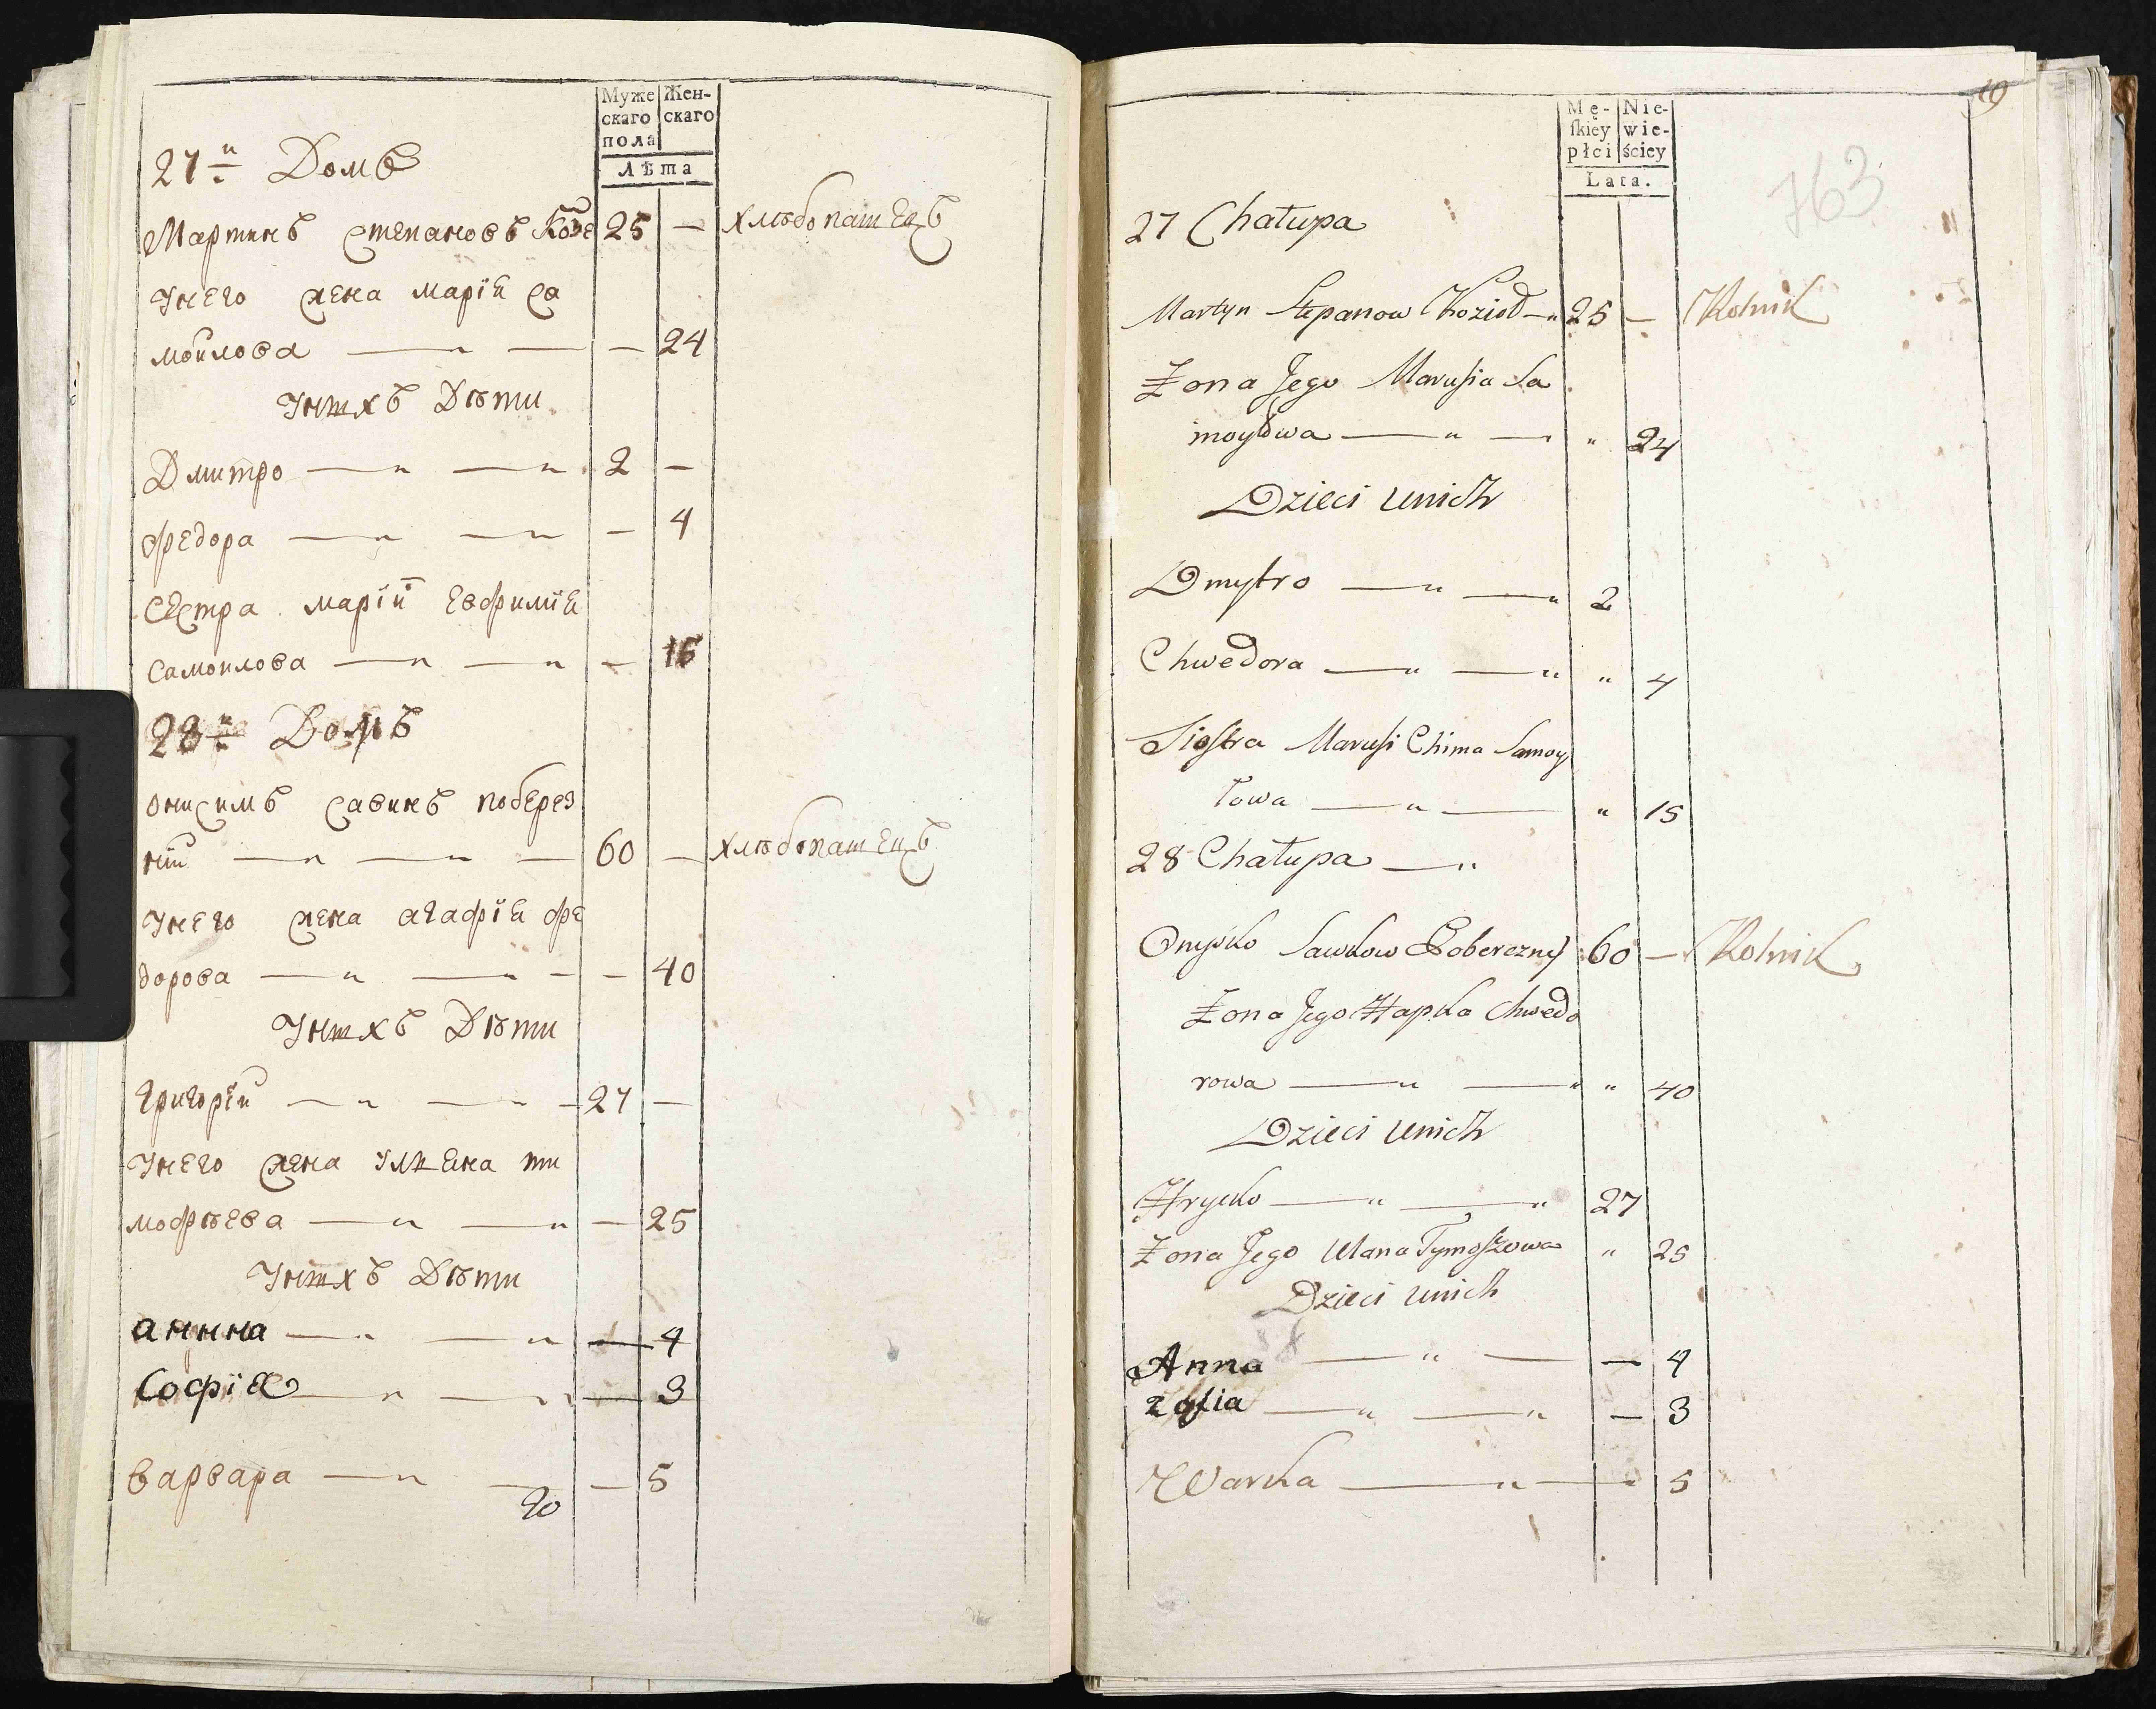 Муже Жен-
скаго скаго
пола
Лѣта
27й Домъ
Мартинъ Степановъ Козе 25 — Хлѣбопашецъ
Унего жена марія Са
мойлова — " — — 24
Унихъ Дѣти
Дмитро — " — " 2 —
федора — " — " — 4
Сестра маріи Евфимія
Самоилова — " — " — 15
28й Домъ
онисимъ Савинъ поберез
ній — " — " — 60 — Хлѣбопашецъ
Унего жена агафія фе
дорова — " — " — — 40
Унихъ Дѣти
григорій — " — " — 27 —
Унего жена Улияна ти
мофѣева — " — " — 25
Унихъ Дѣти
анна — " — " — 4
Софія — " — " — 3
варвара — " — — 5
20
19
Mę- Nie-
ſkiey wie-
płci ściey
Lata.
763
27 Chałupa
Martyn Stepanow Kozioł — " 25 — Rolnik
Żona Jego Marusia Sa
moyłowa — " — " " 24
Dzieci unich
Dmytro — " — " 2
Chwedora — " — " " 4
Siostra Marusi Chima Samoy
łowa — " — " 15
28 Chałupa — "
Onysko Sawkow Poberezny 60 — Rolnik
Żona Jego Hapka Chwedo
rowa — " — " " 40
Dzieci unich
Hrycko — " — " 27
Żona Jego Ulana Tymoszowa " 25
Dzieci unich
Anna — " — — 4
Zofia — " — " — 3
Warka — " — " 5